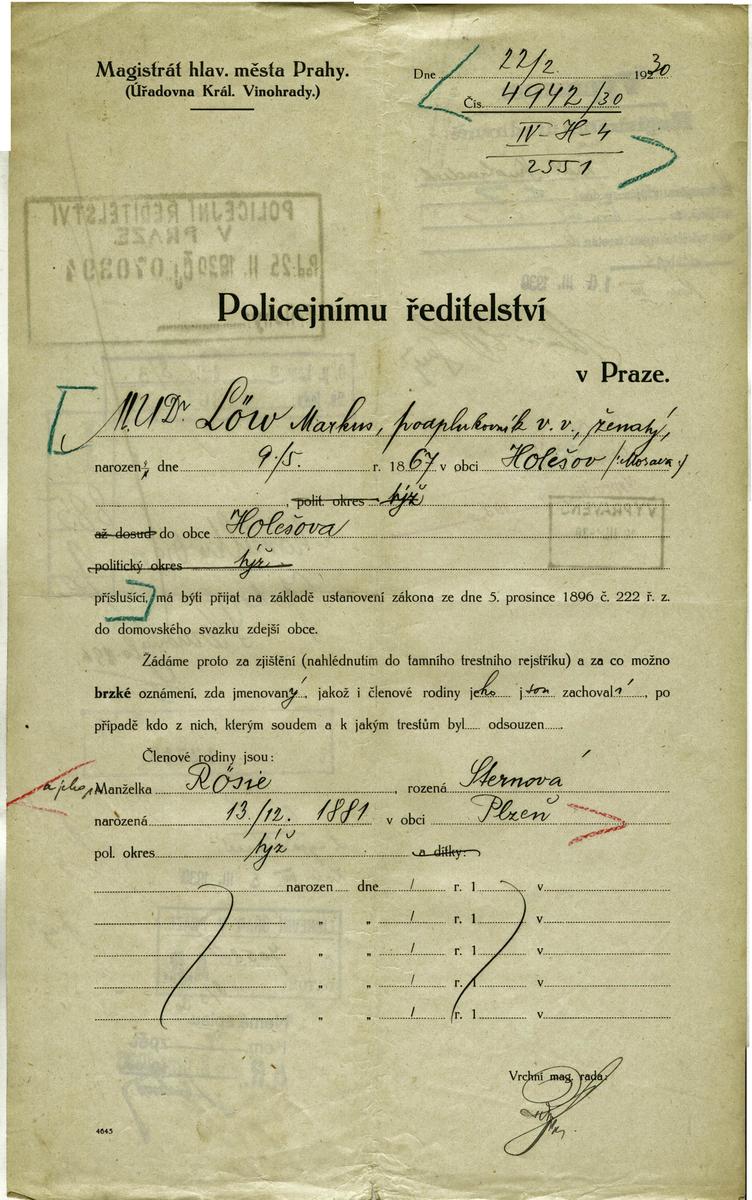 Magistrát hlav. města Prahy.
(Úřadovna Král. Vinohrady.)
Dne 22/2. 1930
Čís. 4942/30
IV-H-4
2551
POLICEJNÍ ŘEDITELSTVÍ
V PRAZE
Policejnímu ředitelství
v Praze.
MUDr. Löw Markus, podplukovník v. v., ženatý,
narozen dne 9./5. r. 1867 v obci Holešov /:Morava:/
, polit. okres týž
až dosud do obce Holešova
politický okres týž
příslušící, má býti přijat na základě ustanovení zákona ze dne 5. prosince 1896 č. 222 ř. z.
do domovského svazku zdejší obce.
Žádáme proto za zjištění (nahlédnutim do tamního trestního rejstříku) a za co možno
brzké oznámení, zda jmenovaný, jakož i členové rodiny jeho jsou zachovalí, po
případě kdo z nich, kterým soudem a k jakým trestům byl..... odsouzen.....
Členové rodiny jsou:
Manželka Rösie, rozená Sternová
narozená 13./12. 1881 v obci Plzeň
pol. okres týž a dítky:
narozen dne / r. 1 v
„ „ / r. 1 v
„ „ / r. 1 v
„ „ / r. 1 v
„ „ / r. 1 v
Vrchní mag. rada:
4645